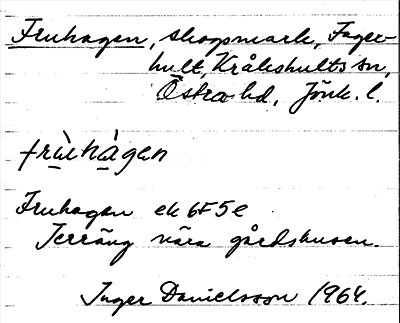 Fruhagen, skogsmark, Fager-
hult, Kråkshults sn,
Östra hd, Jönk. l.
frùhàgen
Fruhagen ek 6F5e
Terräng nära gårdshusen.
Inger Danielsson 1964.